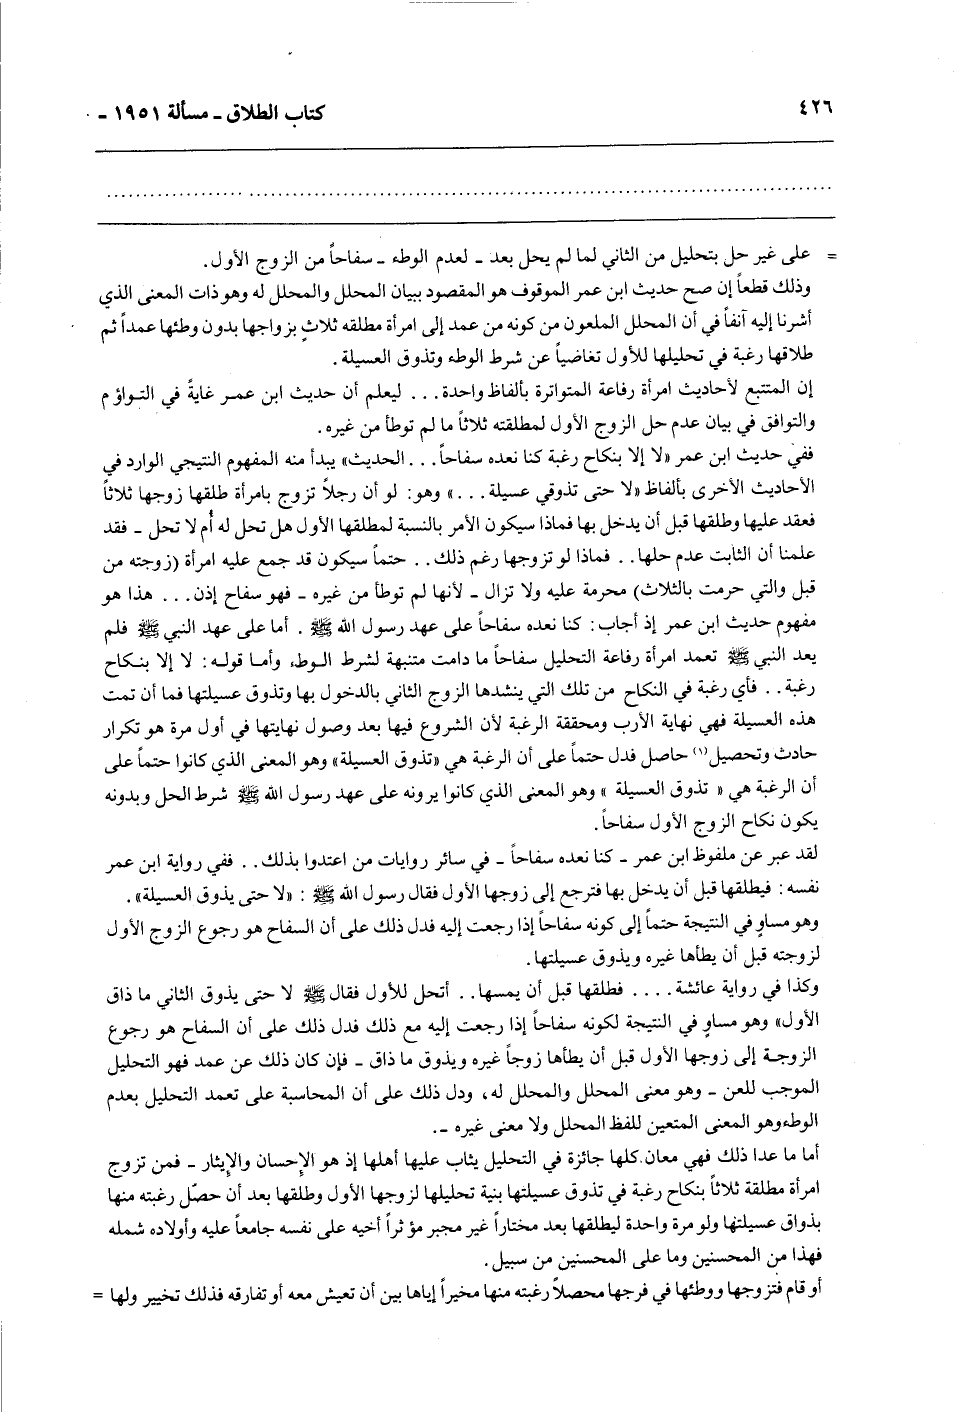 ٤٢٦
كتاب الطلاق ـ مسألة ١٩٥١ ـ
= على غير حل بتحليل من الثاني لما لم يحل بعد ـ لعدم الوطء ـ سفاحاً من الزوج الأول.
وذلك قطعاً إن صح حديث ابن عمر الموقوف هو المقصود ببيان المحلل والمحلل له وهو ذات المعنى الذي
أشرنا إليه آنفاً في أن المحلل الملعون من كونه من عمد إلى امرأة مطلقه ثلاثٍ بزواجها بدون وطئها عمداً ثم
طلاقها رغبة في تحليلها للأول تغاضياً عن شرط الوطء وتذوق العسيلة.
إن المتتبع لأحاديث امرأة رفاعة المتواترة بألفاظ واحدة... ليعلم أن حديث ابن عمر غايةً في التواؤم
والتوافق في بيان عدم حل الزوج الأول لمطلقته ثلاثاً ما لم توطأ من غيره.
ففي حديث ابن عمر «لا إلا بنكاح رغبة كنا نعده سفاحاً... الحديث» يبدأ منه المفهوم النتيجي الوارد في
الأحاديث الأخرى بألفاظ «لا حتى تذوقي عسيلة...» وهو: لو أن رجلاً تزوج بامرأة طلقها زوجها ثلاثاً
فعقد عليها وطلقها قبل أن يدخل بها فماذا سيكون الأمر بالنسبة لمطلقها الأول هل تحل له أم لا تحل ـ فقد
علمنا أن الثابت عدم حلها.. فماذا لو تزوجها رغم ذلك.. حتماً سيكون قد جمع عليه امرأة (زوجته من
قبل والتي حرمت بالثلاث) محرمة عليه ولا تزال ـ لأنها لم توطأ من غيره ـ فهو سفاح إذن... هذا هو
مفهوم حديث ابن عمر إذ أجاب: كنا نعده سفاحاً على عهد رسول الله ﷺ. أما على عهد النبي ﷺ فلم
يعد النبي ﷺ تعمد امرأة رفاعة التحليل سفاحاً ما دامت متنبهة لشرط الوطء وأما قوله: لا إلا بنكاح
رغبة.. فأي رغبة في النكاح من تلك التي ينشدها الزوج الثاني بالدخول بها وتذوق عسيلتها فما أن تمت
هذه العسيلة فهي نهاية الأرب ومحققة الرغبة لأن الشروع فيها بعد وصول نهايتها في أول مرة هو تكرار
حادث وتحصيل(١) حاصل فدل حتماً على أن الرغبة هي «تذوق العسيلة» وهو المعنى الذي كانوا حتماً على
أن الرغبة هي « تذوق العسيلة » وهو المعنى الذي كانوا يرونه على عهد رسول الله ﷺ شرط الحل وبدونه
يكون نكاح الزوج الأول سفاحاً.
لقد عبر عن ملفوظ ابن عمر ـ كنا نعده سفاحاً ـ في سائر روايات من اعتدوا بذلك.. ففي رواية ابن عمر
نفسه: فيطلقها قبل أن يدخل بها فترجع إلى زوجها الأول فقال رسول الله ﷺ: «لا حتى يذوق العسيلة».
وهو مساوٍ في النتيجة حتماً إلى كونه سفاحاً إذا رجعت إليه فدل ذلك على أن السفاح هو رجوع الزوج الأول
لزوجته قبل أن يطأها غيره ويذوق عسيلتها.
وكذا في رواية عائشة.... فطلقها قبل أن يمسها.. أتحل للأول فقال ﷺ لا حتى يذوق الثاني ما ذاق
الأول» وهو مساوٍ في النتيجة لكونه سفاحاً إذا رجعت إليه مع ذلك فدل ذلك على أن السفاح هو رجوع
الزوجة إلى زوجها الأول قبل أن يطأها زوجاً غيره ويذوق ما ذاق ـ فإن كان ذلك عن عمد فهو التحليل
الموجب للعن ـ وهو معنى المحلل والمحلل له، ودل ذلك على أن المحاسبة على تعمد التحليل بعدم
الوطء وهو المعنى المتعين للفظ المحلل ولا معنى غيره ـ.
أما ما عدا ذلك فهي معان كلها جائزة في التحليل يثاب عليها أهلها إذ هو الإحسان والإيثار ـ فمن تزوج
امرأة مطلقة ثلاثاً بنكاح رغبة في تذوق عسيلتها بنية تحليلها لزوجها الأول وطلقها بعد أن حصّل رغبته منها
بذواق عسيلتها ولو مرة واحدة ليطلقها بعد مختاراً غير مجبر مؤثراً أخيه على نفسه جامعاً عليه وأولاده شمله
فهذا من المحسنين وما على المحسنين من سبيل.
أو قام فتزوجها ووطئها في فرجها محصلاً رغبته منها مخيراً إياها بين أن تعيش معه أو تفارقه فذلك تخيير ولها =